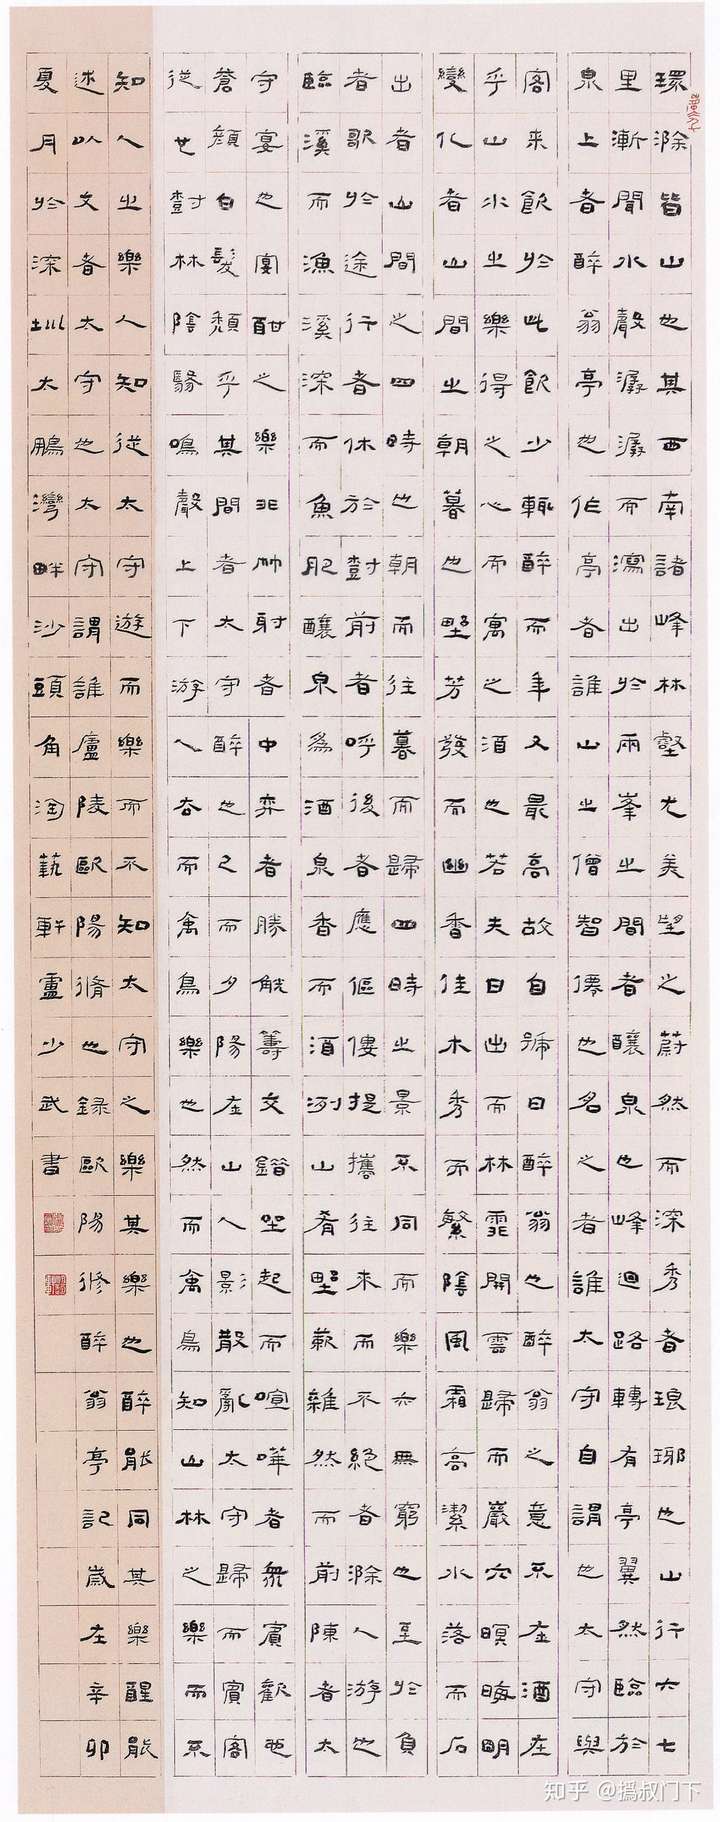 環滁皆山也其西南諸峰林壑尤美望之蔚然而深秀者琅琊也山行六七
里漸聞水聲潺潺而瀉出於兩峯之間者釀泉也峰迴路轉有亭翼然臨於
泉上者醉翁亭也作亭者誰山之僧智僊也名之者誰太守自謂也太守與
客來飲於此飲少輒醉而年又最高故自號曰醉翁也醉翁之意不在酒在
乎山水之樂得之心而寓之酒也若夫日出而林霏開雲歸而巖穴暝晦明
變化者山間之朝暮也野芳發而幽香佳木秀而繁陰風霜高潔水落而石
出者山間之四時也朝而往暮而歸四時之景不同而樂亦無窮也至於負
者歌於途行者休於樹前者呼後者應傴僂提攜往來而不絕者滁人游也
臨溪而漁溪深而魚肥釀泉爲酒泉香而酒洌山肴野蔌雜然而前陳者太
守宴也宴酣之樂非射者中弈者勝觥籌交錯坐起而喧嘩者衆賓歡也
蒼顏白髮頹乎其間者太守醉也已而夕陽在山人影散亂太守歸而賓客
從也樹林陰翳鳴聲上下游人去而禽鳥樂也然而禽鳥知山林之樂而不
知人之樂人知從太守遊而樂而不知太守之樂其樂也醉能同其樂醒能
述以文者太守也太守謂誰廬陵歐陽脩也錄歐陽修醉翁亭記歲在辛卯
夏月於深圳太鵬灣畔沙頭角淘藝軒盧少武書
知乎 @撝叔门下